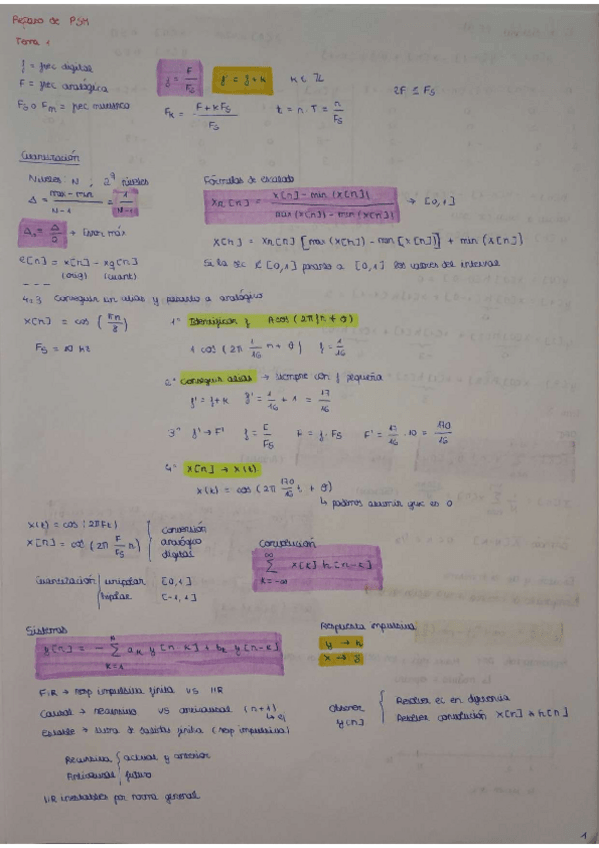 Repaso de PSM
Tema 1
f = frec digital
F = frec analógica
Fs o Fm = frec muestreo
f = F / Fs
f' = f + k
k ∈ Z
2F ≤ Fs
Fk = F + kFs / Fs
t = n · T = n / Fs
Cuantización
Niveles: N , 2^q niveles
Δ = max - min / N-1 = 1 / N-1
→ Error máx
e[n] = x[n] - xq[n]
(orig) (cuant)
Fórmulas de escalado
xn[n] = x[n] - min (x[n]) / max (x[n]) - min (x[n]) → [0,1]
x[n] = xn[n] [max (x[n]) - min [x[n]]] + min (x[n])
Si la sec ∉ [0,1] pasarlo a [0,1] los valores del intervalo
4.3 Conseguir un alias y pasarlo a analógico
x[n] = cos (πn / 8)
Fs = 10 Hz
1º Identificar f A cos (2πfn + θ)
1 cos (2π 1/16 n + θ) f = 1/16
2º Conseguir alias → siempre con f pequeña
f' = f + k f' = 1/16 + 1 = 17/16
3º f' → F' f = F/Fs F = f · Fs F' = 17/16 · 10 = 170/16
4º x[n] → x(t)
x(t) = cos (2π 170/16 t + θ)
↳ podemos asumir que es 0
x(t) = cos (2πFt)
x[n] = cos (2π F/Fs n)
conversión
analógico
digital
Cuantización unipolar [0,1]
bipolar [-1,1]
Convolución
∞ ∑ k=-∞ x[k] h[n-k]
Sistemas
y[n] = - ∑ k=1 ak y[n-k] + bk y[n-k]
Respuesta impulsiva
y → h
x → δ
FIR → resp impulsiva finita vs IIR
Causal → recursivo vs anticausal (n+1)
↳ ej
Estable → suma de salidas finita (resp impulsiva)
Obtener y[n]
Resolver ec en diferencia
Resolver convolución x[n] * h[n]
Recursiva actual y anterior
Anticausal futuro
IIR inestables por norma general
1